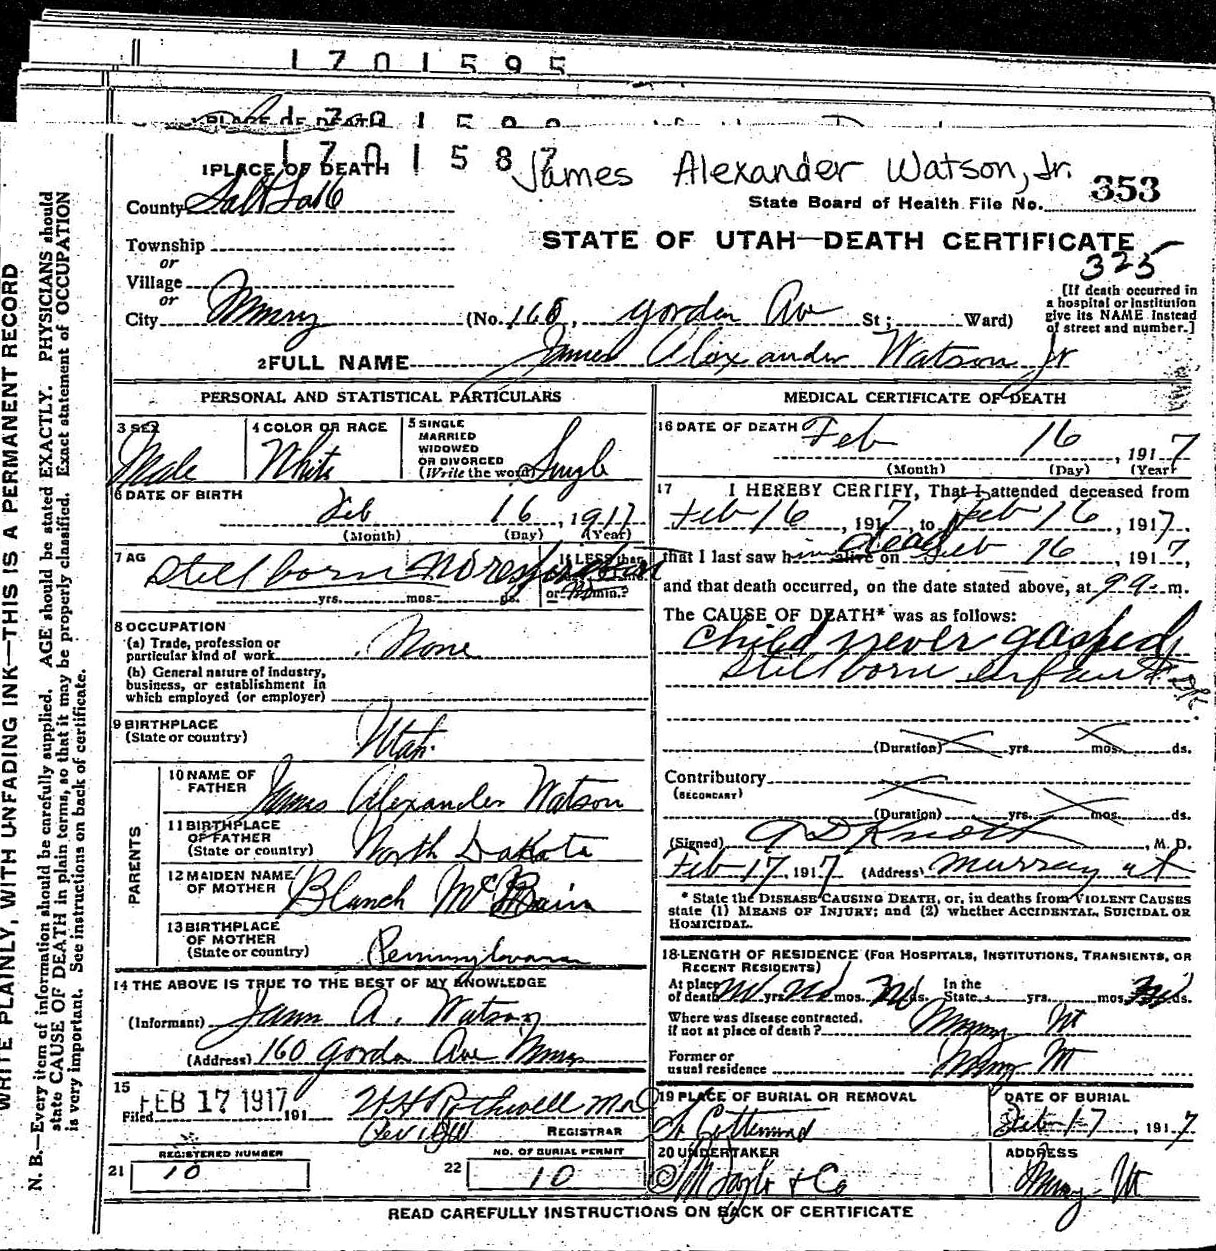 1701595
PLACE OF DEATH
1701587
1 PLACE OF DEATH
James Alexander Watson, Jr.
353
County Salt Lake
State Board of Health File No.
STATE OF UTAH—DEATH CERTIFICATE
325
Township
or
Village
or
City Murray (No. 160, Gordon Av St; Ward)
[If death occurred in a hospital or institution give its NAME instead of street and number.]
2 FULL NAME James Alexander Watson Jr
PERSONAL AND STATISTICAL PARTICULARS
3 SEX Male
4 COLOR OR RACE White
5 SINGLE MARRIED WIDOWED OR DIVORCED (Write the word) Single
6 DATE OF BIRTH
Feb 16, 1917
(Month) (Day) (Year)
7 AGE
Still born No respiration
If LESS than
yrs. mos. ds. or min.?
8 OCCUPATION
(a) Trade, profession or particular kind of work None
(b) General nature of industry, business, or establishment in which employed (or employer)
9 BIRTHPLACE (State or country) Utah
PARENTS
10 NAME OF FATHER James Alexander Watson
11 BIRTHPLACE OF FATHER (State or country) North Dakota
12 MAIDEN NAME OF MOTHER Blanch McBain
13 BIRTHPLACE OF MOTHER (State or country) Pennsylvania
14 THE ABOVE IS TRUE TO THE BEST OF MY KNOWLEDGE
(Informant) James A. Watson
(Address) 160 Gordon Ave Murray
15
Filed FEB 17 1917 191 W H Rothwell
REGISTRAR
REGISTERED NUMBER
21 10
NO. OF BURIAL PERMIT
22 10
MEDICAL CERTIFICATE OF DEATH
16 DATE OF DEATH Feb 16, 1917
(Month) (Day) (Year)
17 I HEREBY CERTIFY, That I attended deceased from
Feb 16, 1917, to Feb 16, 1917,
that I last saw him alive on dead Feb 16, 1917,
and that death occurred, on the date stated above, at m.
The CAUSE OF DEATH* was as follows:
Child never gasped
Still born infant
(Duration) yrs. mos. ds.
Contributory
(SECONDARY)
(Duration) yrs. mos. ds.
(Signed) Knott, M. D.
Feb 17, 1917 (Address) Murray ut
* State the DISEASE CAUSING DEATH, or, in deaths from VIOLENT CAUSES state (1) MEANS OF INJURY; and (2) whether ACCIDENTAL, SUICIDAL OR HOMICIDAL.
18 LENGTH OF RESIDENCE (FOR HOSPITALS, INSTITUTIONS, TRANSIENTS, OR RECENT RESIDENTS)
At place of death yrs. mos. ds. In the State yrs. mos. ds.
Where was disease contracted, if not at place of death? Murray Ut
Former or usual residence Murray Ut
19 PLACE OF BURIAL OR REMOVAL
DATE OF BURIAL
Feb 17, 1917
20 UNDERTAKER
ADDRESS
Murray Ut
READ CAREFULLY INSTRUCTIONS ON BACK OF CERTIFICATE
WRITE PLAINLY, WITH UNFADING INK—THIS IS A PERMANENT RECORD
N. B.—Every item of information should be carefully supplied. AGE should be stated EXACTLY. PHYSICIANS should
state CAUSE OF DEATH in plain terms, so that it may be properly classified. Exact statement of OCCUPATION
is very important. See instructions on back of certificate.